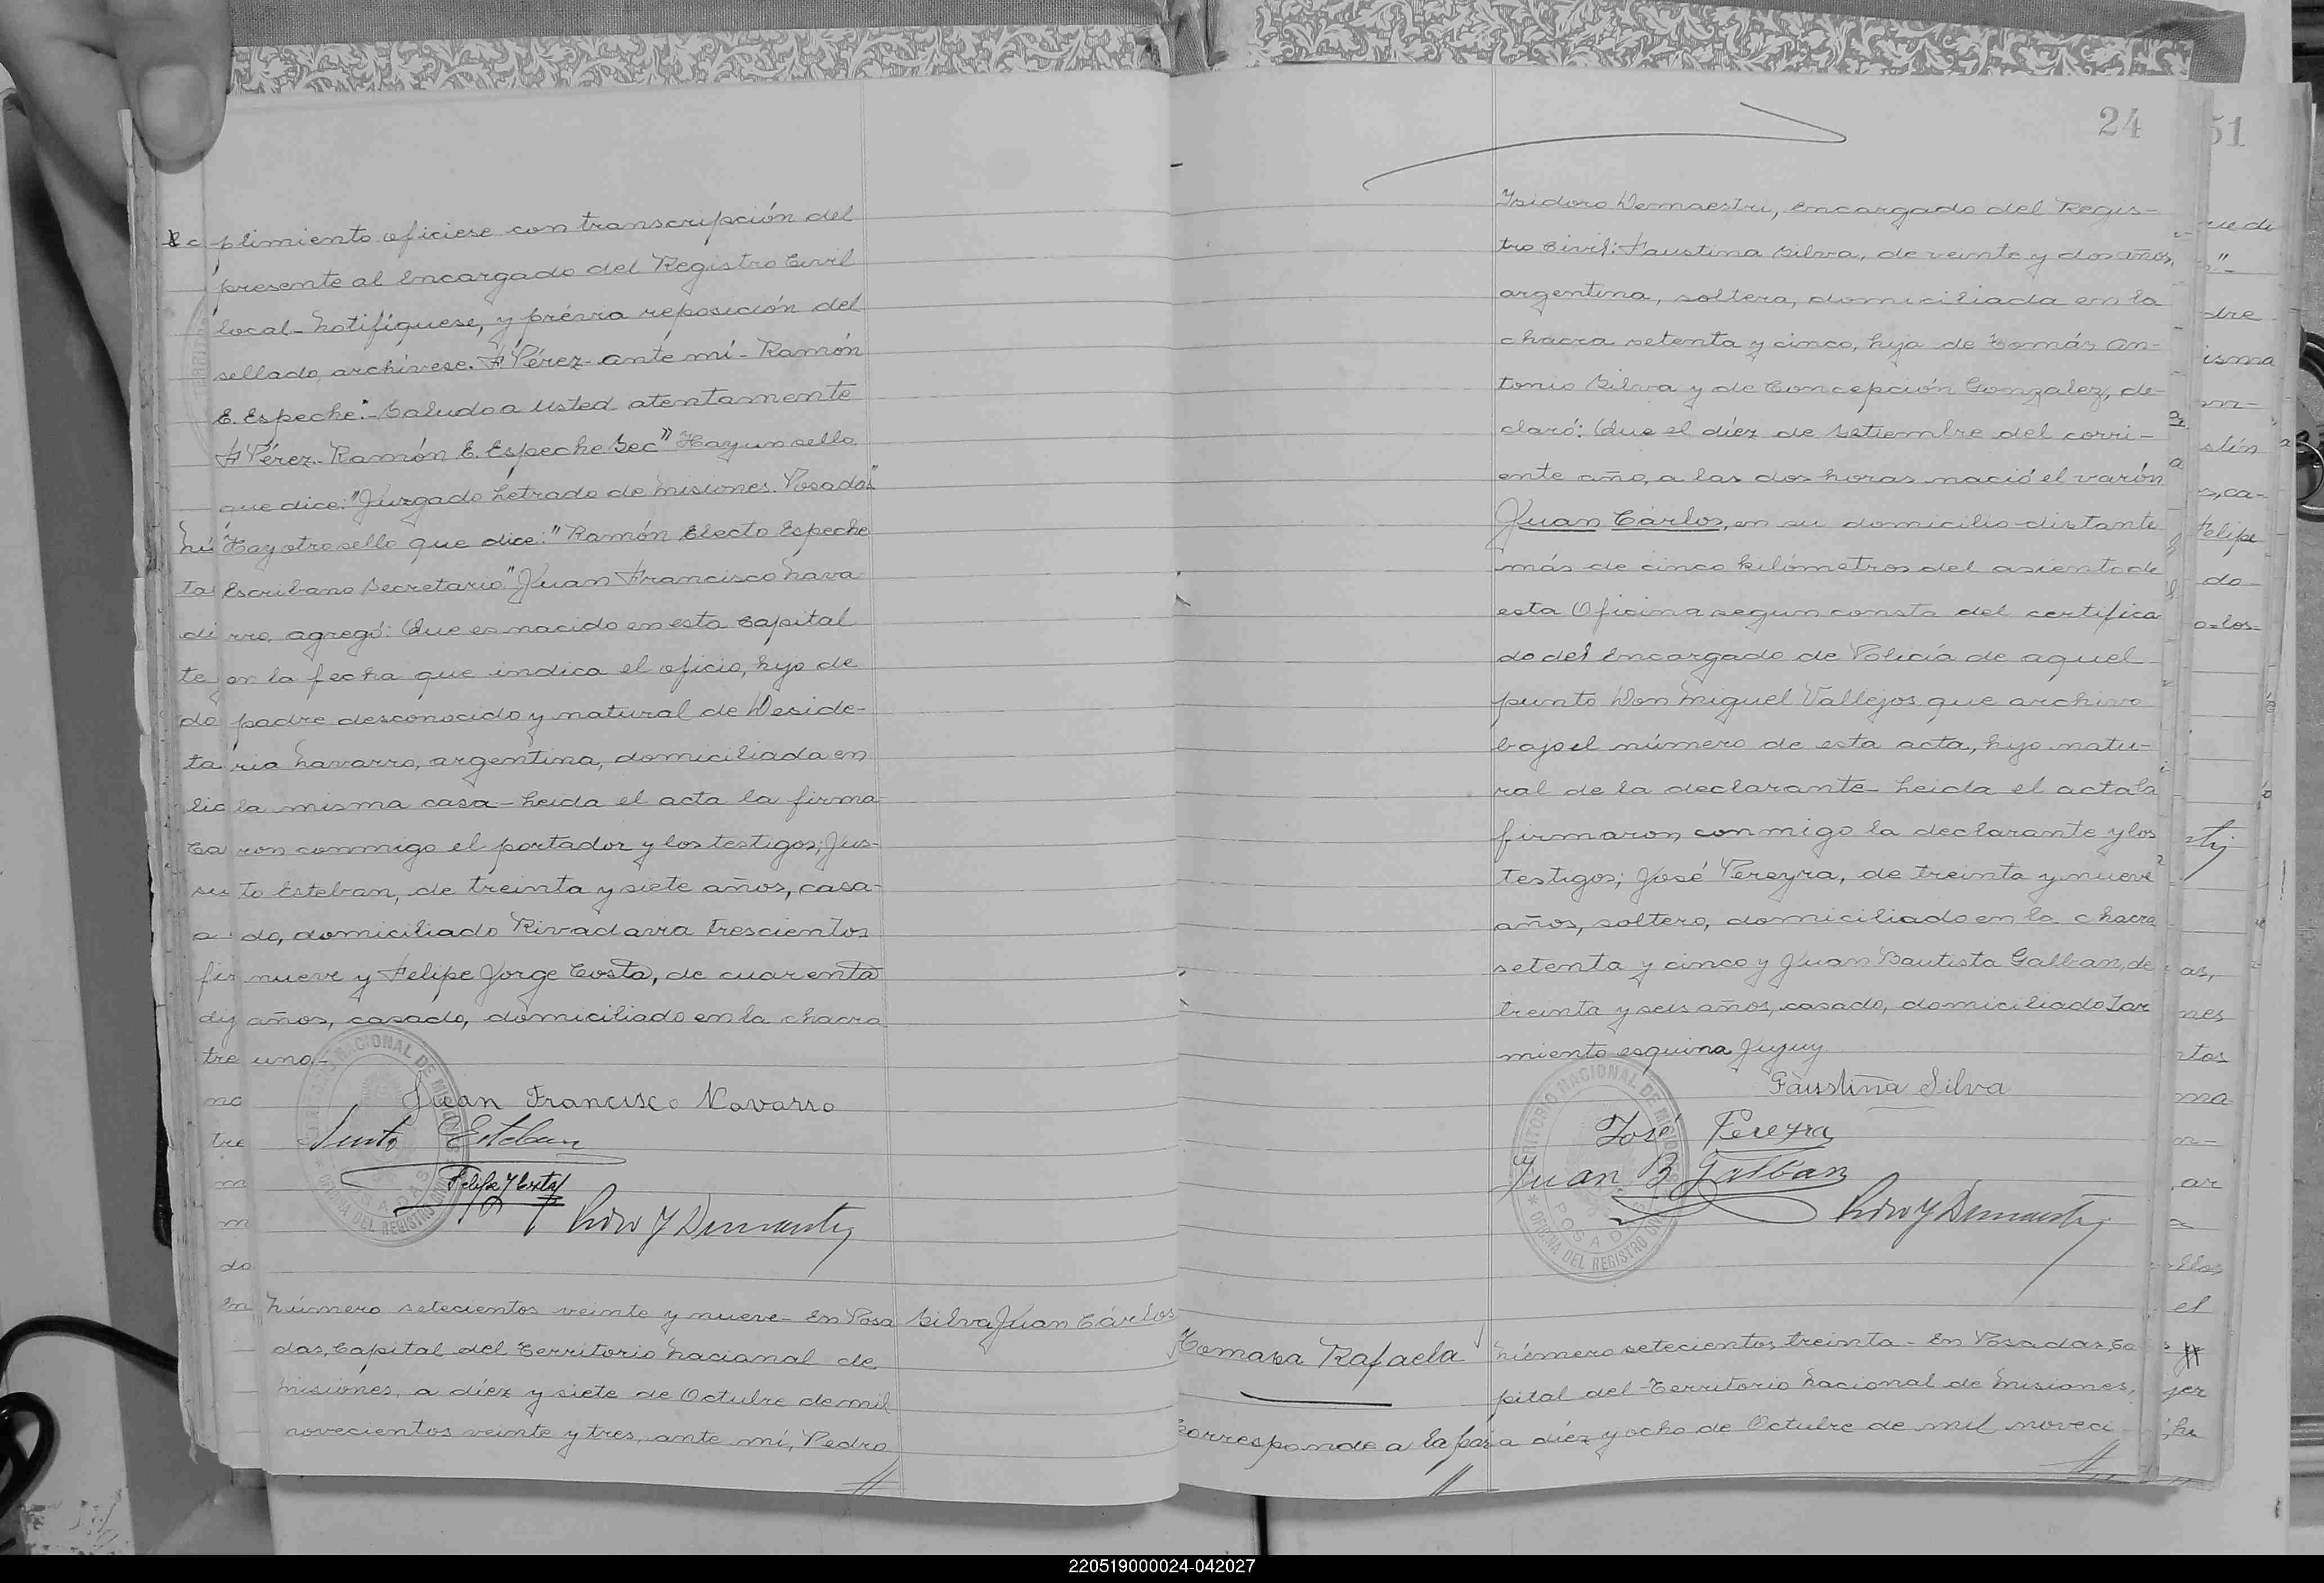 plimiento ofíciese con transcripción del
presente al Encargado del Registro Civil
local- Notifíquese, y prévia reposición del
sellado, archívese. F Pérez- ante mí- Ramón
E. Espeche"- Saludo a Usted atentamente
F Pérez- Ramón E. Espeche Sec" Hay un sello
que dice: "Juzgado Letrado de Misiones. Posadas"
Hay otro sello que dice: "Ramón Electo Espeche
Escribano Secretario" Juan Francisco Nava
rro, agregó: Que es nacido en esta Capital
en la fecha que indica el oficio, hijo de
padre desconocido y natural de Deside-
ria Navarro, argentina, domiciliada en
la misma casa- Leida el acta la firma-
ron conmigo el portador y los testigos; Jus-
to Esteban, de treinta y siete años, casa-
do, domiciliado Rivadavia trescientos
nueve y Felipe Jorge Costa, de cuarenta
años, casado, domiciliado en la chacra
uno-
Juan Francisco Navarro
Justo Esteban
Felipe J Costa
TERRITORIO NACIONAL DE MISIONES
POSADAS
OFICINA DEL REGISTRO CIVIL
Número setecientos veinte y nueve- En Posa
das, Capital del Territorio Nacional de
Misiones, a diéz y siete de Octubre de mil
novecientos veinte y tres, ante mí, Pedro
Silva Juan Cárlos
24
Isidoro Demaestri, Encargado del Regis-
tro Civil: Faustina Silva, de veinte y dos años,
argentina, soltera, domiciliada en la
chacra setenta y cinco, hija de Tomás An-
tonio Silva y de Concepción Gonzalez, de-
claró: Que el diéz de Setiembre del corri-
ente año, a las dos horas nació el varón
Juan Cárlos, en su domicilio distante
más de cinco kilómetros del asiento de
esta Oficina segun consta del certifica
do del Encargado de Policía de aquel
punto Don Miguel Vallejos que archivo
bajo el número de esta acta, hijo natu-
ral de la declarante- Leida el acta la
firmaron conmigo la declarante y los
testigos; José Pereyra, de treinta y nueve
años, soltero, domiciliado en la chacra
setenta y cinco y Juan Bautista Galban, de
treinta y seis años, casado, domiciliado Sar
miento esquina Jujuy
Faustina Silva
José Pereyra
Juan B Galban
TERRITORIO NACIONAL DE MISIONES
POSADAS
OFICINA DEL REGISTRO CIVIL
Tomasa Rafaela
Corresponde a la pá
Número setecientos treinta- En Posadas, Ca
pital del Territorio Nacional de Misiones,
a diéz y ocho de Octubre de mil noveci
51
220519000024-042027